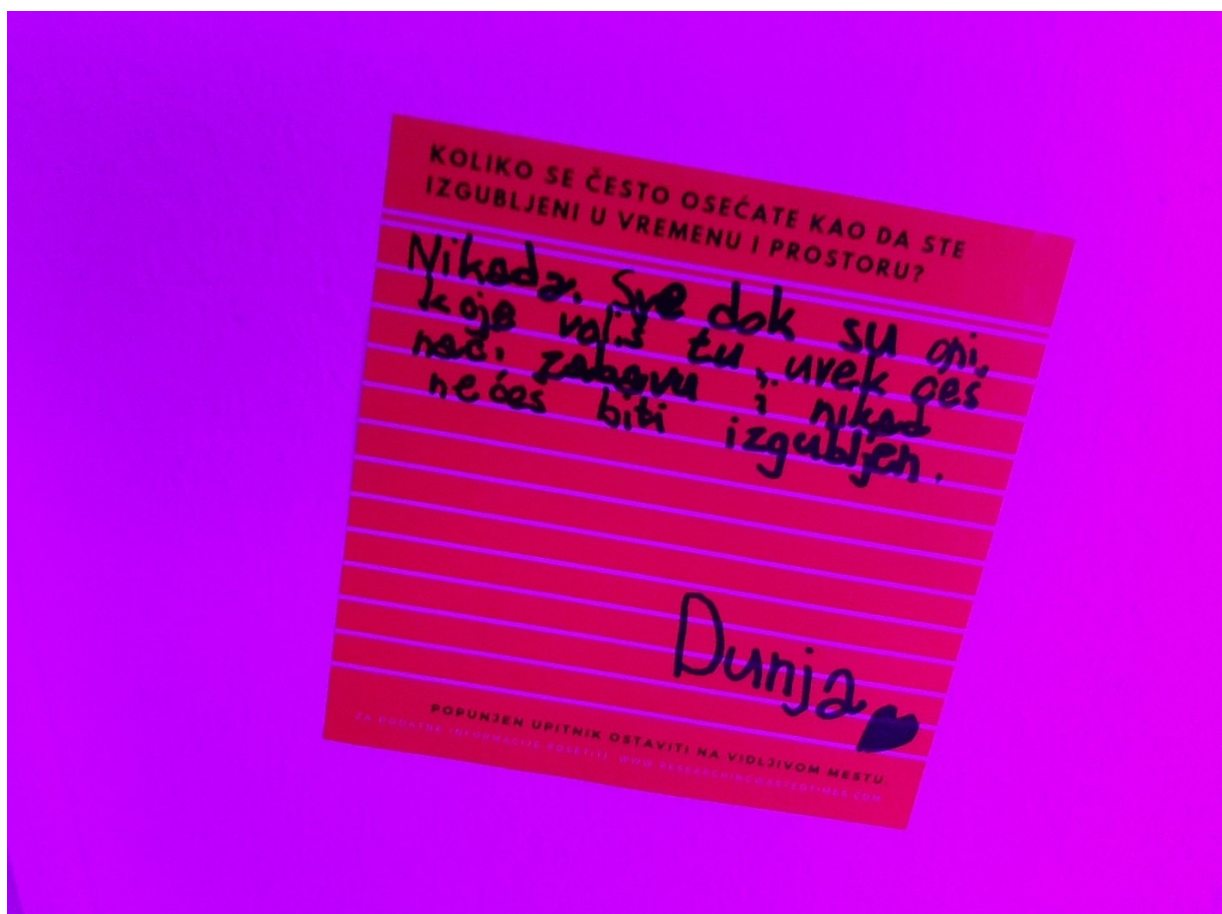 KOLIKO SE ČESTO OSEĆATE KAO DA STE
IZGUBLJENI U VREMENU I PROSTORU?
Nikada. Sve dok su oni,
koje voliš tu, uvek ćeš
naći zabavu i nikad
nećeš biti izgubljen.
Dunja
POPUNJEN UPITNIK OSTAVITI NA VIDLJIVOM MESTU.
ZA DODATNE INFORMACIJE POSETITI